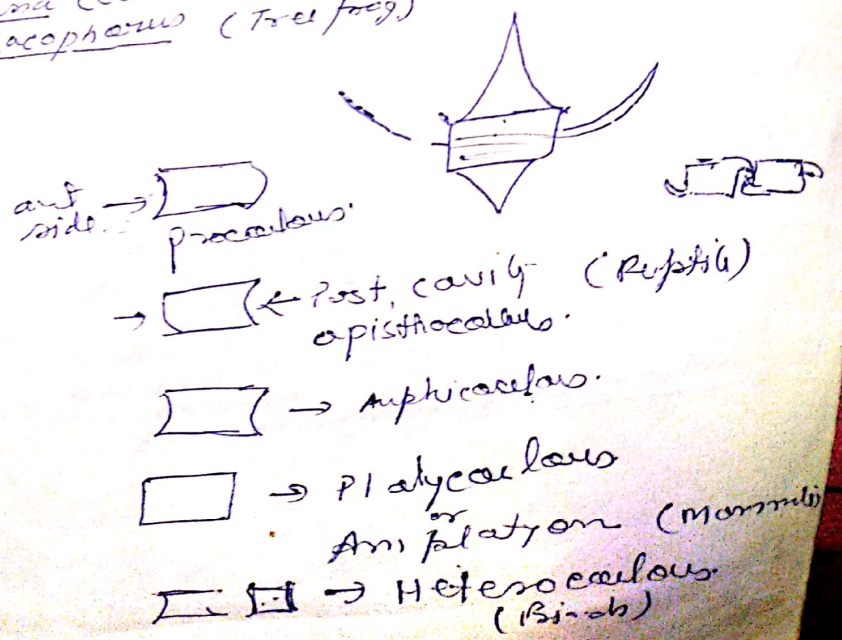 acophorus (Tree frog)
ant side. →
procoelous.
→ ← Post, cavity (Reptile)
opisthocoelous.
→ Amphicoelous.
→ Platycoelous
or
Amplatyon (Mammals)
→ Heterocoelous
(Birds)